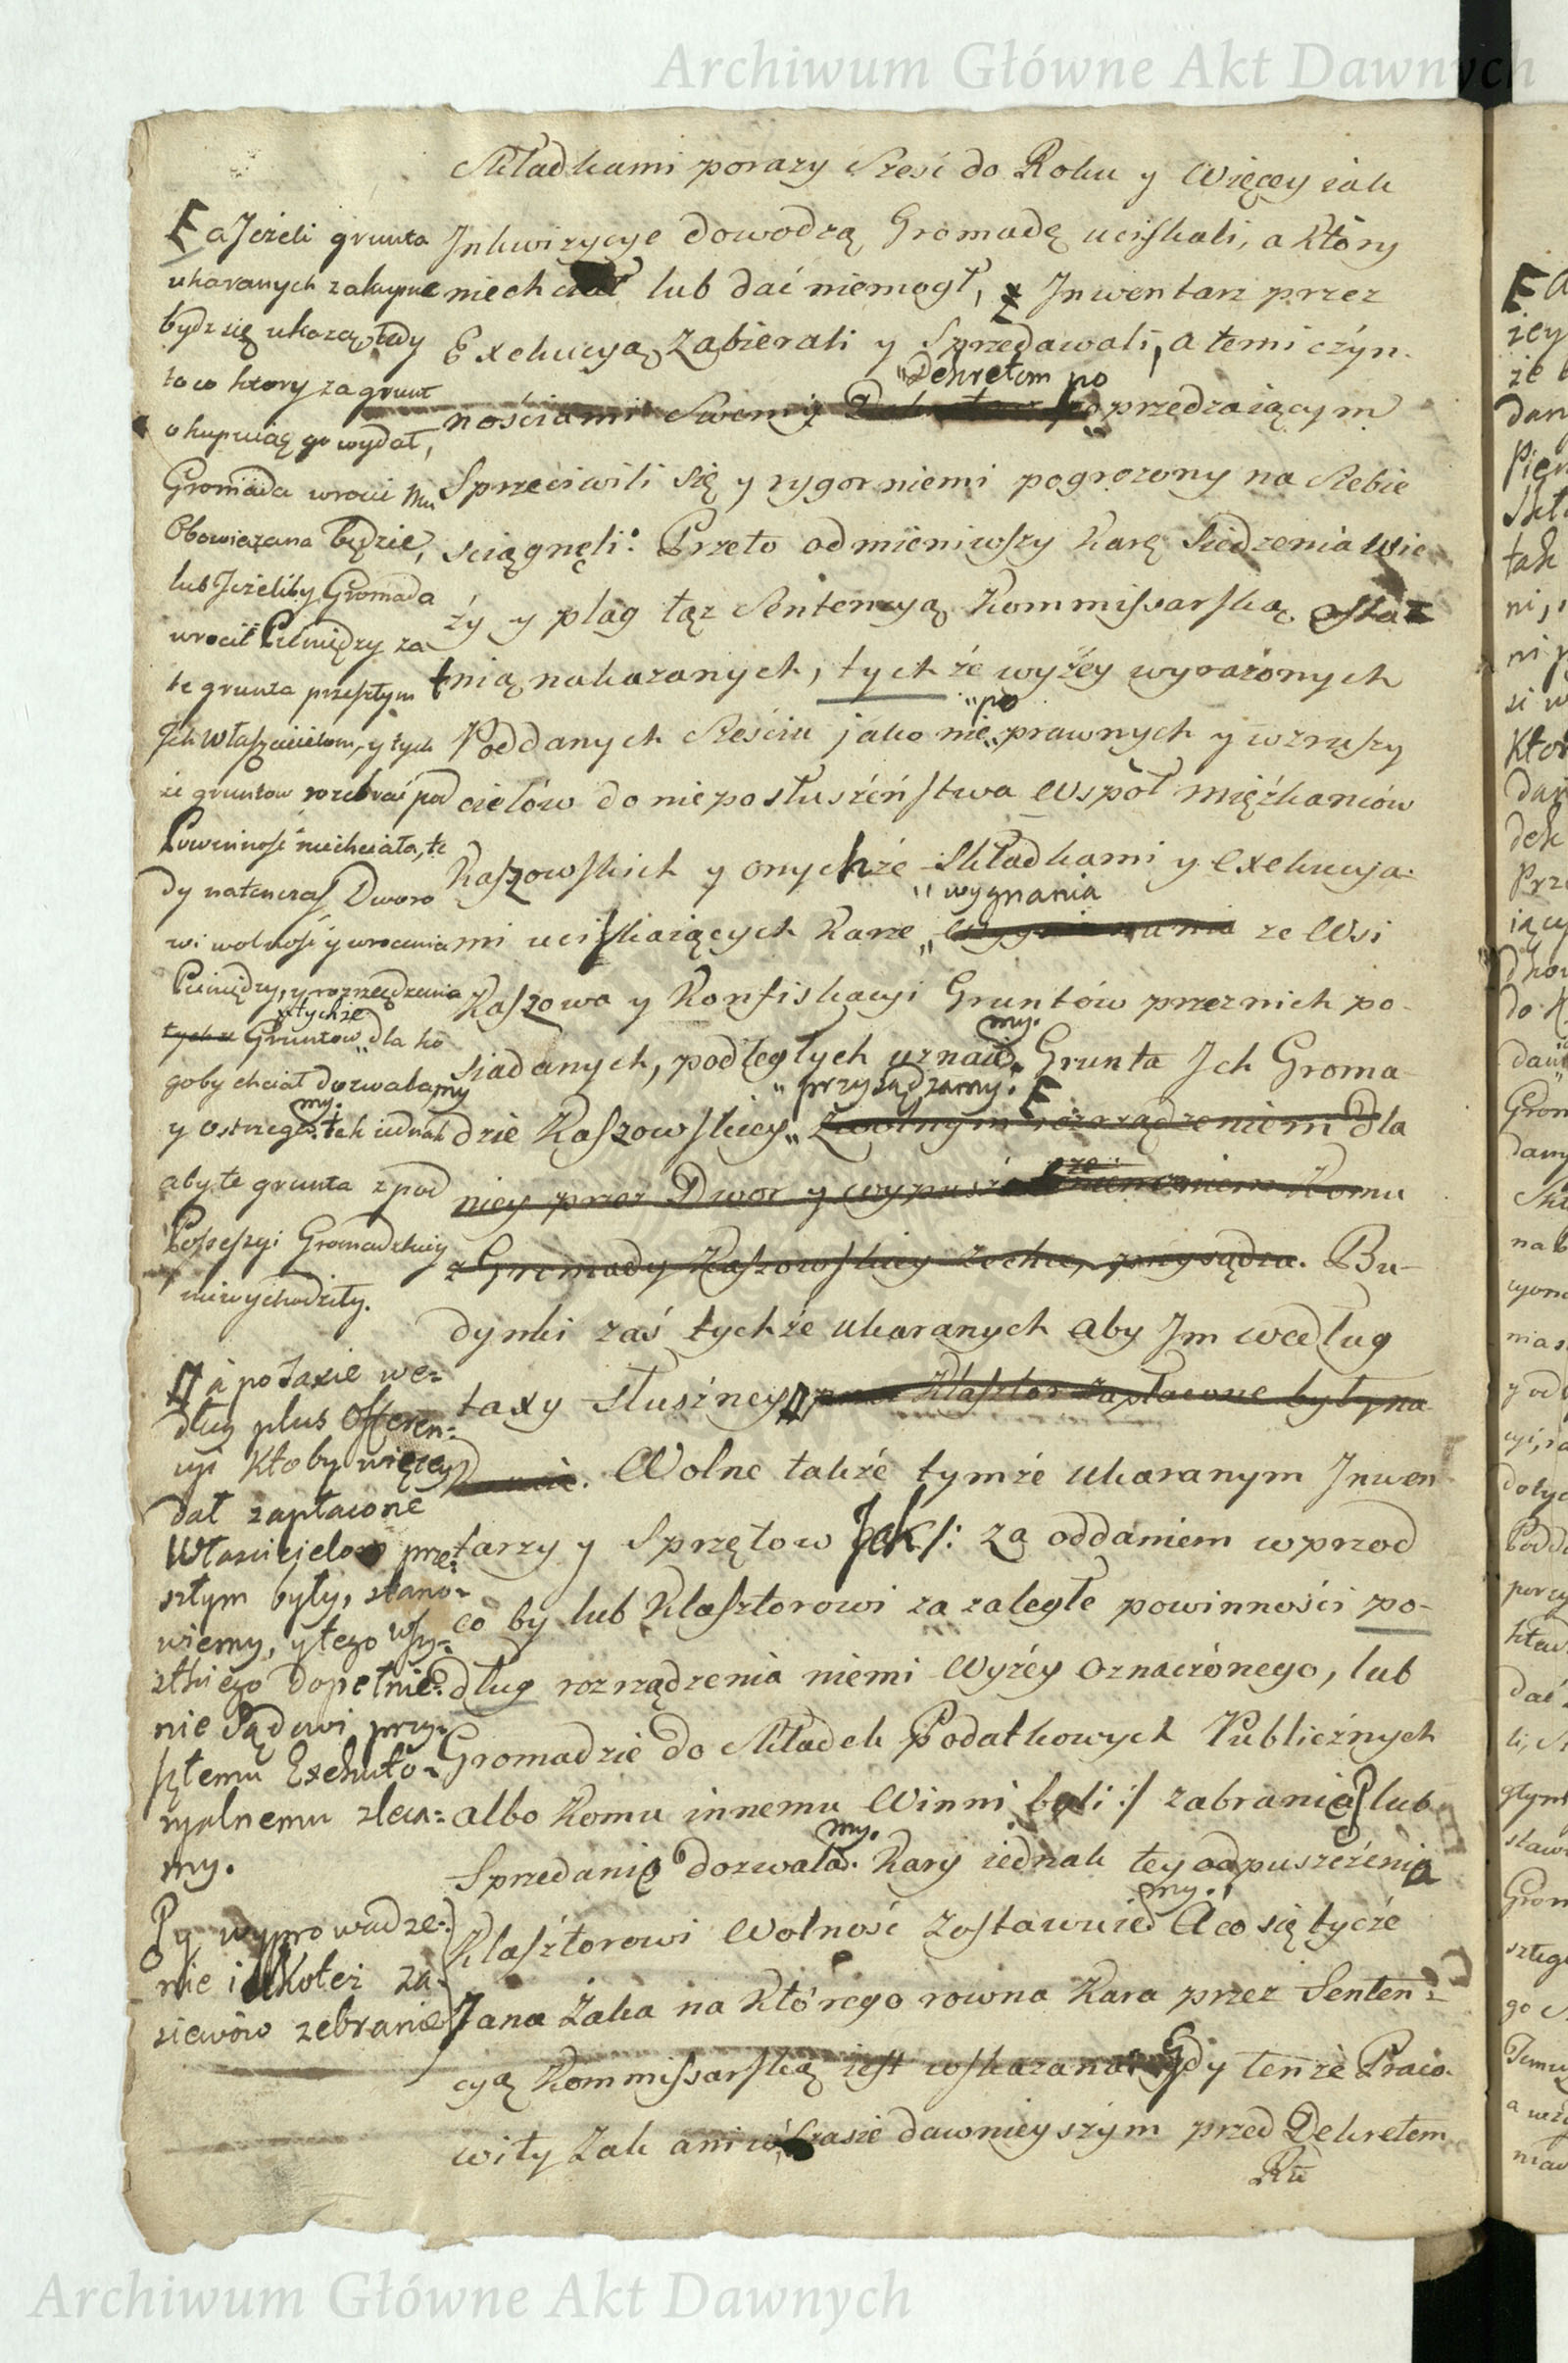 Archiwum Główne Akt Dawnych
Składkami porazy Sześć do Roku y Więcey iak
Inkwizycye dowodzą Gromadę uciskali, a który
niechciał lub dać niemogł, Inwentarz przez
Exekucyą zabierali y Sprzedawali, a temi czyn-
nościami Swemi Dekretom po przedzaiącym
Sprzeciwili się y rygor niemi pogrożony na Siebie
sciągnęli: Przeto odmieniwszy Karę Siedzenia Wie-
ży y plag tąż Sentencyą Kommissarską ostat
tnią nakazanych, tychże wyżey wyrażonych
Poddanych Sześciu jako nie po prawnych y wzruszy
cielów do nieposłuszeństwa Współ mięszkańców
Kaszowskich y onychże Składkami y exekucya-
mi uciskaiących Karze wygnania ze Wsi
Kaszowa y Konfiskacyi Gruntów przeznich po-
siadanych, podległych uznaiemy. Grunta Ich Groma-
dzie Kaszowskiey przysądzamy. Zwolnym rozrządzeniem dla
niey przez Dwor y wypuszczeniem Komu
z Gromady Kaszowskiey zechce, przysądza. Bu-
dynki zaś tychże ukaranych aby Im według
taxy słuszney przez Klasztor zapłacone były na
Wolne także tymże ukaranym Inwen
tarzy y Sprzętow Jak/: za oddaniem wprzod
co by lub Klasztorowi za zaległe powinności po-
dług rozrządzenia niemi Wyżey oznaczonego, lub
Gromadzie do Składek Podatkowych Publicznych
albo Komu innemu Winni byli :/ zabrania lub
Sprzedania dozwalamy. Kary iednak tey odpuszczenia
Klasztorowi Wolność zostawuiemy. A co się tycze
Jana Żaka na Którego rowna Kara przez Senten-
cyą Kommissarską iest wskazana Gdy tenże Praco-
wity Żak ani w Czasie dawnieyszym przed Dekretem
a Jeżeli grunta
ukaranych zakupne
bydź się ukażą, tedy
to co ktory za grunt
okupuiąc go wydał,
Gromada wrocić Mu
Obowiązana będzie,
lub Jeżeliby Gromada
wrocić Pieniędzy za
te grunta przeszłym
Ich Właszcicielom, y tych
że gruntow rozebrać pod
Powinność niechciała, te
dy natenczas Dworo
wi wolność y wrocenia
Pieniędzy, y rozrządzenia
tychże Gruntow dla ko
goby chciał dozwalamy
y ostrzegamy. tak iednak
aby te grunta z pod
Possessyi Gromadzkiey
niewychodziły.
a po Taxie we-
dług plus Offeren-
cyi Ktoby więcey
dał zapłacone
Właścicielom prze-
szłym były, stano-
wiemy, y tego wszy-
stkiego dopełnie-
nie Sądowi przy-
szłemu Exekuto-
ryalnemu zleca-
my.
wyprowadze-
nie iakoteż za-
siewów zebranie
Archiwum Główne Akt Dawnych